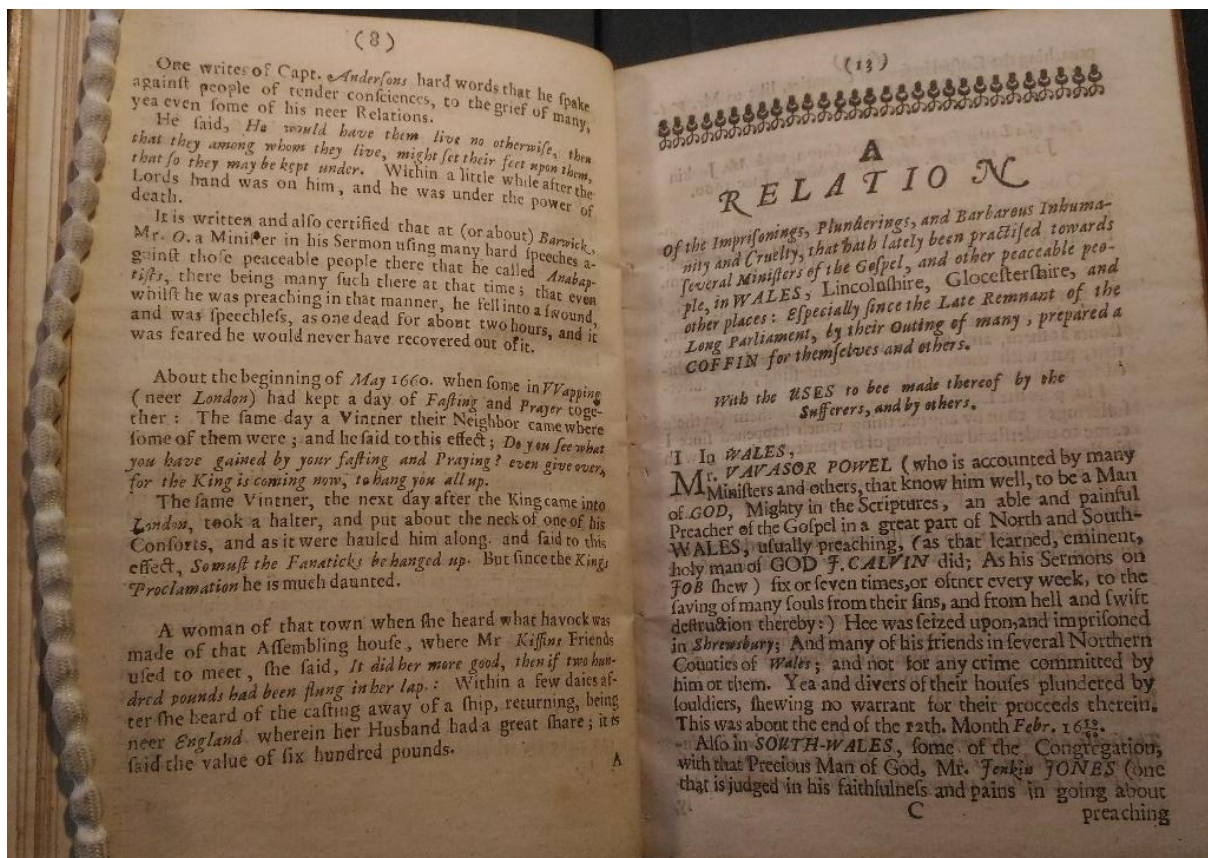 (8)
One writes of Capt. Anderſons hard words that he ſpake
againſt people of tender conſciences, to the grief of many,
yea even ſome of his neer Relations.
He ſaid, He would have them live no otherwiſe, then
that they among whom they live, might ſet their feet upon them,
that ſo they may be kept under. Within a little while after the
Lords hand was on him, and he was under the power of
death.
It is written and alſo certified that at (or about) Barwick,
Mr. O. a Miniſter in his Sermon uſing many hard ſpeeches a-
gainſt thoſe peaceable people there that he called Anabap-
tiſts, there being many ſuch there at that time; that even
whilſt he was preaching in that manner, he fell into a ſwound,
and was ſpeechleſs, as one dead for about two hours, and it
was feared he would never have recovered out of it.
About the beginning of May 1660. when ſome in VVapping
( neer London) had kept a day of Faſting and Prayer toge-
ther : The ſame day a Vintner their Neighbor came where
ſome of them were ; and he ſaid to this effect ; Do you ſee what
you have gained by your faſting and Praying? even give over,
for the King is coming now, to hang you all up.
The ſame Vintner, the next day after the King came into
London, took a halter, and put about the neck of one of his
Conſorts, and as it were hauled him along. and ſaid to this
effect, So muſt the Fanaticks be hanged up. But ſince the Kings
Proclamation he is much daunted.
A woman of that town when ſhe heard what havock was
made of that Aſſembling houſe, where Mr Kiffins Friends
uſed to meet , ſhe ſaid, It did her more good, then if two hun-
dred pounds had been flung in her lap. : Within a few daies af-
ter ſhe heard of the caſting away of a ſhip, returning, being
neer England wherein her Husband had a great ſhare; it is
ſaid the value of ſix hundred pounds.
A
(13)
A
RELATION
Of the Impriſonings, Plunderings, and Barbarous Inhuma-
nity and Cruelty, that hath lately been practiſed towards
ſeveral Miniſters of the Goſpel, and other peaceable peo-
ple, in WALES, Lincolnſhire, Gloceſterſhire, and
other places : Eſpecially ſince the Late Remnant of the
Long Parliament, by their Outing of many , prepared a
COFFIN for themſelves and others.
With the USES to bee made thereof by the
Sufferers, and by others.
I In WALES,
Mr. VAVASOR POWEL ( who is accounted by many
Miniſters and others, that know him well, to be a Man
of GOD, Mighty in the Scriptures , an able and painful
Preacher of the Goſpel in a great part of North and South-
WALES, uſually preaching, (as that learned, eminent,
holy man of GOD J. CALVIN did; As his Sermons on
JOB ſhew ) ſix or ſeven times, or oftner every week, to the
ſaving of many ſouls from their ſins, and from hell and ſwift
deſtruction thereby:) Hee was ſeized upon, and impriſoned
in Shrewsbury; And many of his friends in ſeveral Northern
Counties of Wales ; and not for any crime committed by
him or them. Yea and divers of their houſes plundered by
ſouldiers, ſhewing no warrant for their proceeds therein.
This was about the end of the 12th. Month Febr. 16 59/60.
Alſo in SOUTH-WALES, ſome of the Congregation,
with that Precious Man of God, Mr. Jenkin JONES (one
that is judged in his faithfulneſs and pains in going about
C preaching